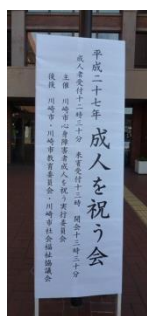 平成二十七年 成人を祝う会
成人者受付十二時三十分 来賓受付十三時 開会十三時三十分
主催 川崎市心身障害者成人を祝う実行委員会
後援 川崎市・川崎市教育委員会・川崎市社会福祉協議会